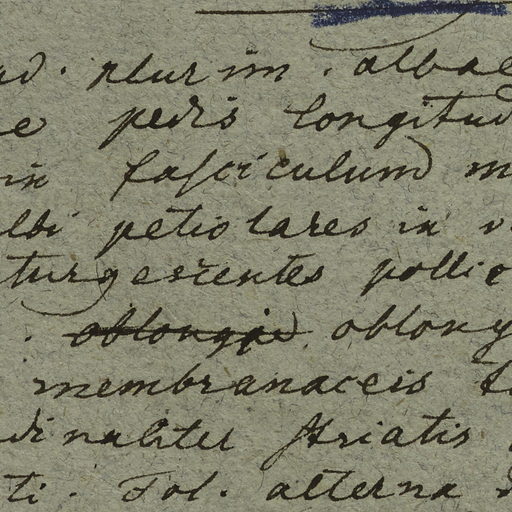 ad. plurim. albae
e pedis longitud
in fasciculum m
lbi petiolares in v
turgescentes pollic
. oblongis oblong
membranaceis t
dinaliter striatis
ti. Fol. alterna